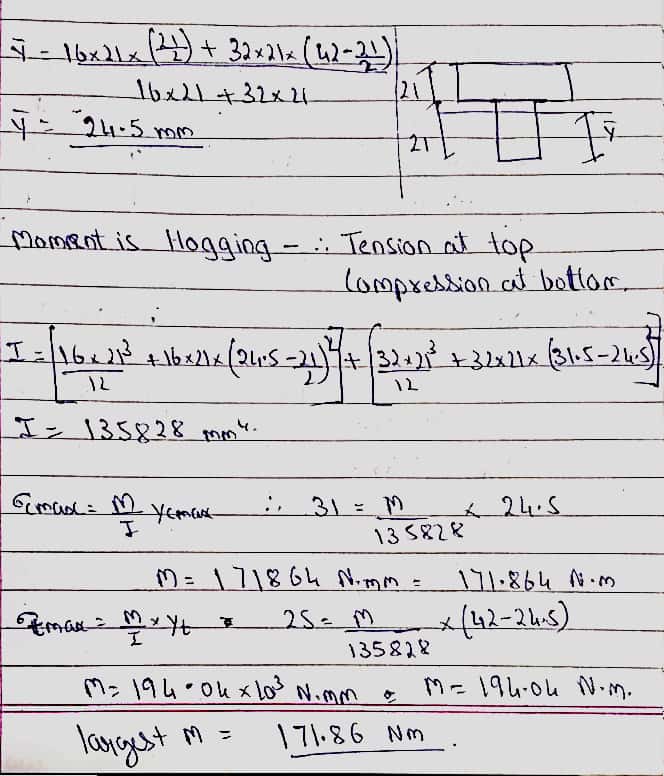 ȳ = 16x21x(21/2) + 32x21x(42-21/2)
16x21 + 32x21
ȳ = 24.5 mm
21
21
ȳ
Moment is Hogging - ∴ Tension at top
Compression at bottom.
I = [16x21³/12 + 16x21x(24.5-21/2)²] + [32x21³/12 + 32x21x(31.5-24.5)²]
I = 135828 mm⁴.
σcmax = M/I ycmax ∴ 31 = M/135828 x 24.5
M = 171864 N.mm = 171.864 N.m
σtmax = M/I x yt = 25 = M/135828 x (42-24.5)
M = 194.04 x 10³ N.mm = M = 194.04 N.m.
largest M = 171.86 Nm.